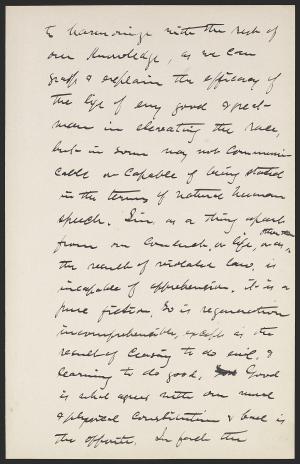 to harmonize with the rest of
our knowledge, as we can
grasp & explain the efficacy of
the life of any good & great
man in elevating the race,
but in some way not communi
cable or capable of being stated
in the terms of natural human
speech. Sin, as a thing apart
from our conduct or life, other than
or as
the result of violated law, is
incapable of apprehension. it is a
pure fiction. So is regeneration
incomprehensible, except as the
result of ceasing to do evil, &
learning to do good. Good
is what agrees with our moral
& physical constitution & bad is
the opposite. In fact the